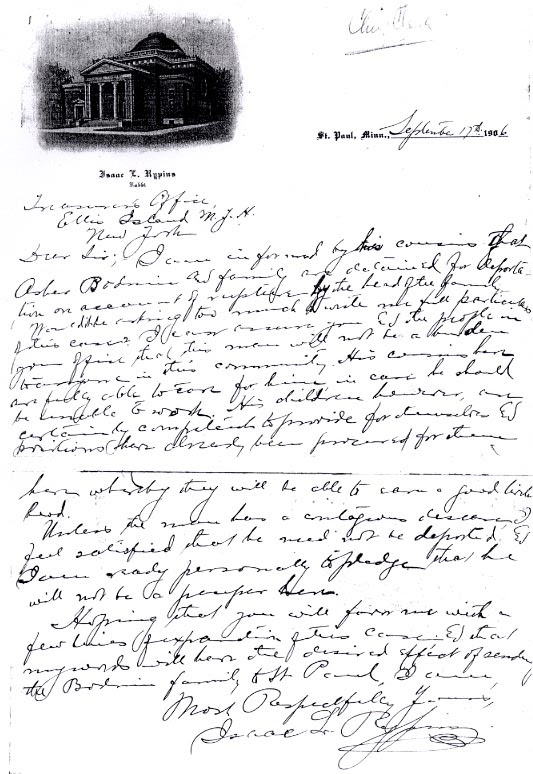 St. Paul, Minn., September 17th 1906
Isaac L. Rypins
Rabbi
Office,
Ellis Island N.Y.H.
New York
Dear Sir; I am informed by his cousins that
Asher Bodnin & family are detained for deporta-
tion on account of rupture by the head of the family
Would it be asking too much to write me full particulars
of this case. I can assure you & the people in
your office that this man will not be a burden
to anyone in this community. His cousins here
are fully able to care for him, in case he should
be unable to work. His children however, are
certainly competent to provide for themselves &
positions have already been procured for them
here whereby they will be able to earn a good liveli
hood.
Unless the man has a contagious disease I
feel satisfied that he need not be deported &
I am ready personally to pledge that he
will not be a pauper here.
Hoping that you will favor me with a
few lines of this case & that
my words will have the desired effect of sending
the Bodnin family to St Paul, I am,
Most Respectfully Yours,
Isaac L. Rypins